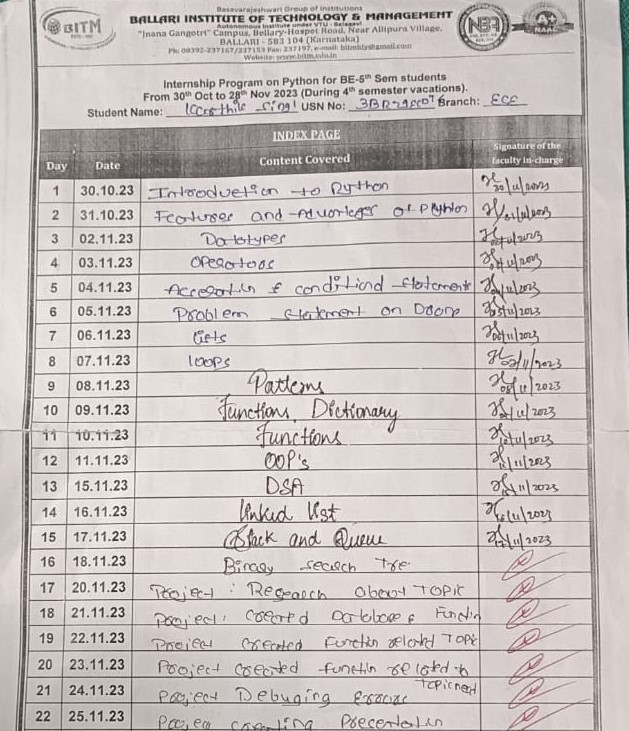 BITM
Basavarajeshwari Group of Institutions
BALLARI INSTITUTE OF TECHNOLOGY & MANAGEMENT
Autonomous Institute under VTU - Belagavi
"Jnana Gangotri" Campus, Bellary-Hospet Road, Near Allipura Village,
BALLARI - 583 104 (Karnataka)
Ph: 08392-237167/237153 Fax: 237197, e-mail: bitmbly@gmail.com
Website: www.bitm.edu.in
NBA
A+
NAAC
Internship Program on Python for BE-5th Sem students
From 30th Oct to 28th Nov 2023 (During 4th semester vacations).
Student Name: USN No: Branch: ECE
INDEX PAGE
Day Date Content Covered Signature of the faculty in-charge
1 30.10.23 Introduction to Python
2 31.10.23 Features and Advantages of Python
3 02.11.23 Datatypes
4 03.11.23 Operators
5 04.11.23 & conditional statements
6 05.11.23 Problem statement on
7 06.11.23
8 07.11.23 loops
9 08.11.23 Patterns
10 09.11.23 Functions, Dictionary
11 10.11.23 Functions
12 11.11.23 OOP's
13 15.11.23 DSA
14 16.11.23 linked list
15 17.11.23 Stack and Queue
16 18.11.23 Binary search Tre
17 20.11.23 Project : Research about TOPIC
18 21.11.23 Project : created Database & Functin
19 22.11.23 Project created Functin related TOPIC
20 23.11.23 Project created functin related to
21 24.11.23 Project Debuging
22 25.11.23 Project Presentatin